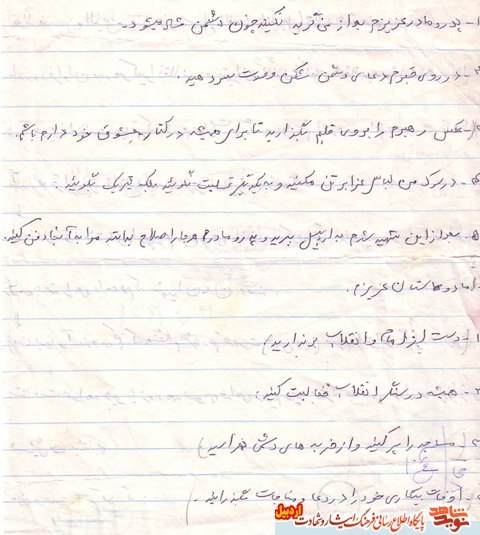 ۱- پدر و مادر عزیزم بعد از من گریه نکنید چون دشمن شاد میشود.
۲- در روی قبرم دعای دشمن شکن وحدت سر دهید.
۳- عکس رهبرم را بروی قلبم بگذارید تا برای همیشه در کنار معشوق خود دارم باشم.
۴- در مرگ من لباس عزا بر تن مکنید و به یکدیگر تسلیت نگوئید بلکه تبریک بگوئید.
۵- بعد از این شهید شدم به اردبیل ببرید و پدر و مادرم هر جا صلاح بدانند مرا به آنجا دفن کنید.
اما دوستان عزیزم.
۱- دست از امام و انقلاب برندارید)
۲- همیشه در سنگر انقلاب فعالیت کنید.
۳- مساجد را پر کنید و از ضربه های دشمن نهراسید)
۴- اوقات بیکاری خود را در دعا و مناجات بگذرانید.
نوید شاهد اردبیل
پایگاه اطلاع رسانی فرهنگ ایثار و شهادت